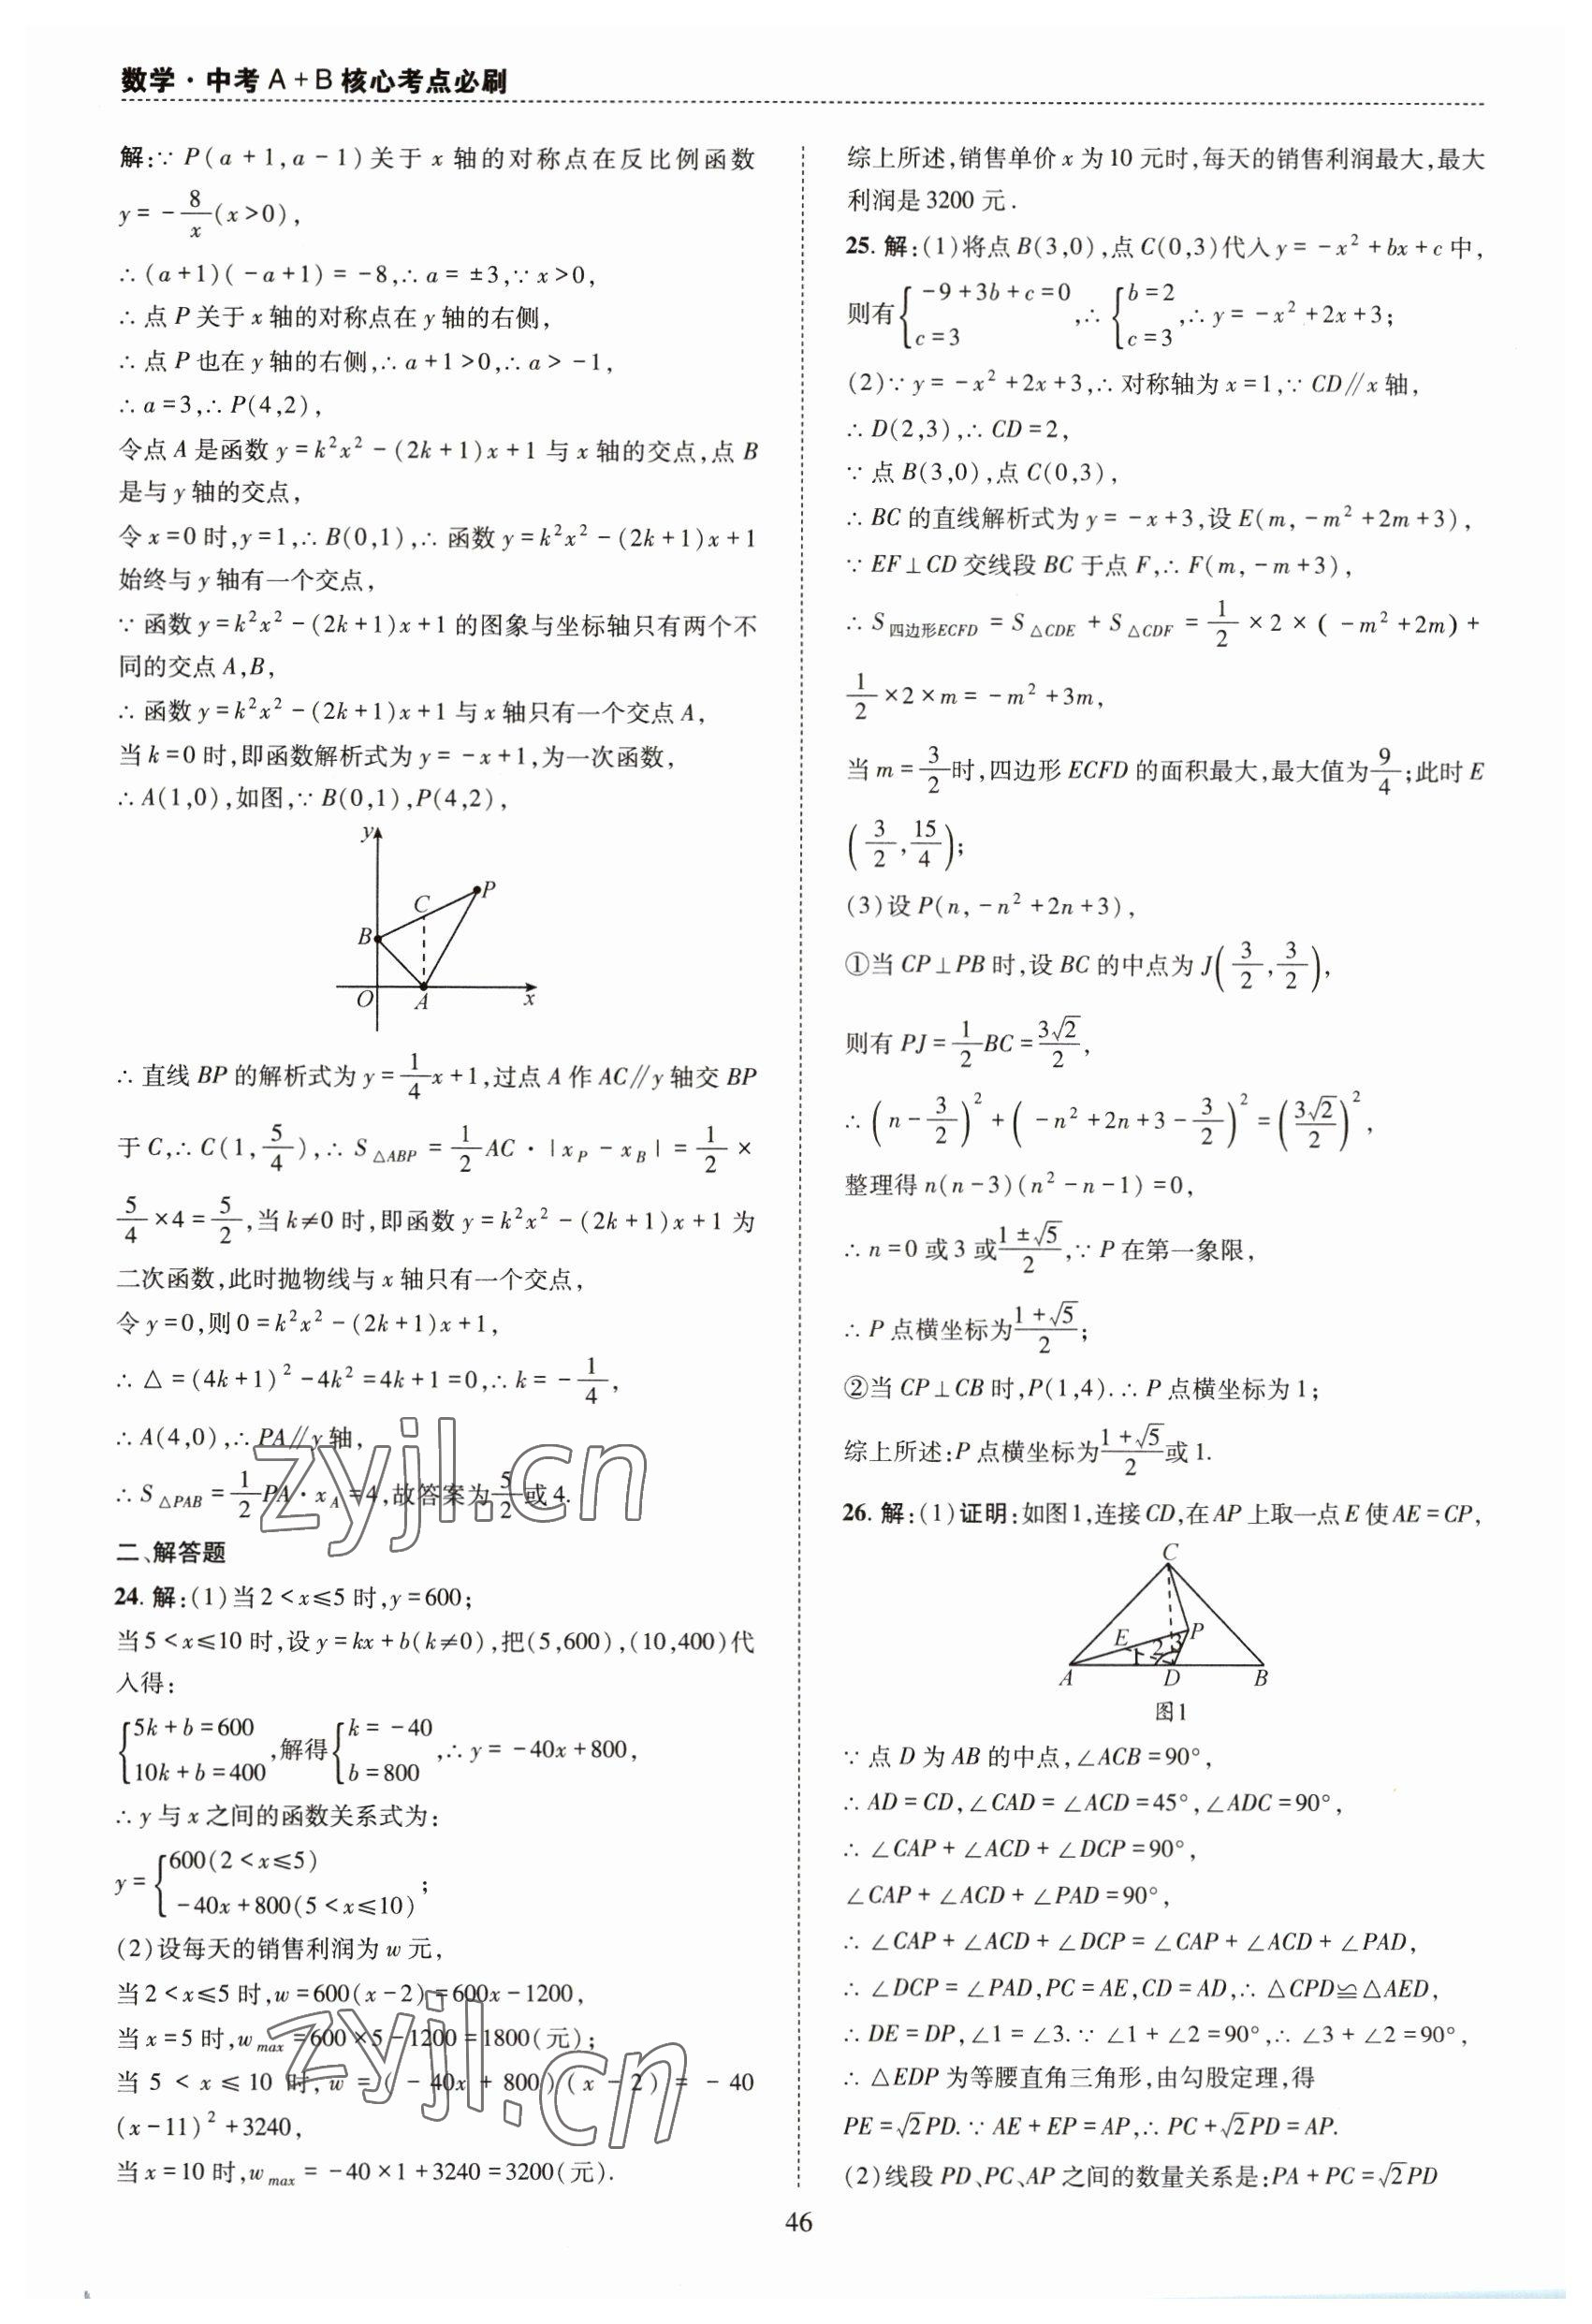 数学·中考A+B核心考点必刷
解:∵ P(a+1,a-1)关于 x 轴的对称点在反比例函数
y=-8/x(x>0),
∴(a+1)(-a+1)=-8,∴a=±3,∵x>0,
∴点 P 关于 x 轴的对称点在 y 轴的右侧,
∴点 P 也在 y 轴的右侧,∴a+1>0,∴a>-1,
∴a=3,∴P(4,2),
令点 A 是函数 y=k²x²-(2k+1)x+1 与 x 轴的交点,点 B
是与 y 轴的交点,
令 x=0 时,y=1,∴B(0,1),∴函数 y=k²x²-(2k+1)x+1
始终与 y 轴有一个交点,
∵函数 y=k²x²-(2k+1)x+1 的图象与坐标轴只有两个不
同的交点 A,B,
∴函数 y=k²x²-(2k+1)x+1 与 x 轴只有一个交点 A,
当 k=0 时,即函数解析式为 y=-x+1,为一次函数,
∴A(1,0),如图,∵B(0,1),P(4,2),
y
P
C
B
O
A
x
∴直线 BP 的解析式为 y=1/4x+1,过点 A 作 AC∥y 轴交 BP
于 C,∴C(1,5/4),∴S△ABP=1/2AC·|xP-xB|=1/2×
5/4×4=5/2,当 k≠0 时,即函数 y=k²x²-(2k+1)x+1 为
二次函数,此时抛物线与 x 轴只有一个交点,
令 y=0,则 0=k²x²-(2k+1)x+1,
∴△=(4k+1)²-4k²=4k+1=0,∴k=-1/4,
∴A(4,0),∴PA∥y 轴,
∴S△PAB=1/2PA·xA=4,故答案为5/2或4.
二、解答题
24.解:(1)当 2<x≤5 时,y=600;
当 5<x≤10 时,设 y=kx+b(k≠0),把(5,600),(10,400)代
入得:
{5k+b=600
10k+b=400,解得{k=-40
b=800,∴y=-40x+800,
∴y 与 x 之间的函数关系式为:
y={600(2<x≤5)
-40x+800(5<x≤10);
(2)设每天的销售利润为 w 元,
当 2<x≤5 时,w=600(x-2)=600x-1200,
当 x=5 时,wmax=600×5-1200=1800(元);
当 5<x≤10 时,w=(-40x+800)(x-2)=-40
(x-11)²+3240,
当 x=10 时,wmax=-40×1+3240=3200(元).
综上所述,销售单价 x 为 10 元时,每天的销售利润最大,最大
利润是 3200 元.
25.解:(1)将点 B(3,0),点 C(0,3)代入 y=-x²+bx+c 中,
则有{-9+3b+c=0
c=3,∴{b=2
c=3,∴y=-x²+2x+3;
(2)∵y=-x²+2x+3,∴对称轴为 x=1,∵CD∥x 轴,
∴D(2,3),∴CD=2,
∵点 B(3,0),点 C(0,3),
∴BC 的直线解析式为 y=-x+3,设 E(m,-m²+2m+3),
∵EF⊥CD 交线段 BC 于点 F,∴F(m,-m+3),
∴S四边形ECFD=S△CDE+S△CDF=1/2×2×(-m²+2m)+
1/2×2×m=-m²+3m,
当 m=3/2时,四边形 ECFD 的面积最大,最大值为9/4;此时 E
(3/2,15/4);
(3)设 P(n,-n²+2n+3),
①当 CP⊥PB 时,设 BC 的中点为 J(3/2,3/2),
则有 PJ=1/2BC=3√2/2,
∴(n-3/2)²+(-n²+2n+3-3/2)²=(3√2/2)²,
整理得 n(n-3)(n²-n-1)=0,
∴n=0 或 3 或(1±√5)/2,∵P 在第一象限,
∴P 点横坐标为(1+√5)/2;
②当 CP⊥CB 时,P(1,4).∴P 点横坐标为 1;
综上所述:P 点横坐标为(1+√5)/2或 1.
26.解:(1)证明:如图1,连接 CD,在 AP 上取一点 E 使 AE=CP,
C
E
P
1 2 3
A
D
B
图1
∵点 D 为 AB 的中点,∠ACB=90°,
∴AD=CD,∠CAD=∠ACD=45°,∠ADC=90°,
∴∠CAP+∠ACD+∠DCP=90°,
∠CAP+∠ACD+∠PAD=90°,
∴∠CAP+∠ACD+∠DCP=∠CAP+∠ACD+∠PAD,
∴∠DCP=∠PAD,PC=AE,CD=AD,∴△CPD≌△AED,
∴DE=DP,∠1=∠3.∵∠1+∠2=90°,∴∠3+∠2=90°,
∴△EDP 为等腰直角三角形,由勾股定理,得
PE=√2PD.∵AE+EP=AP,∴PC+√2PD=AP.
(2)线段 PD、PC、AP 之间的数量关系是:PA+PC=√2PD
46
zyjl.cn
zyjl.cn